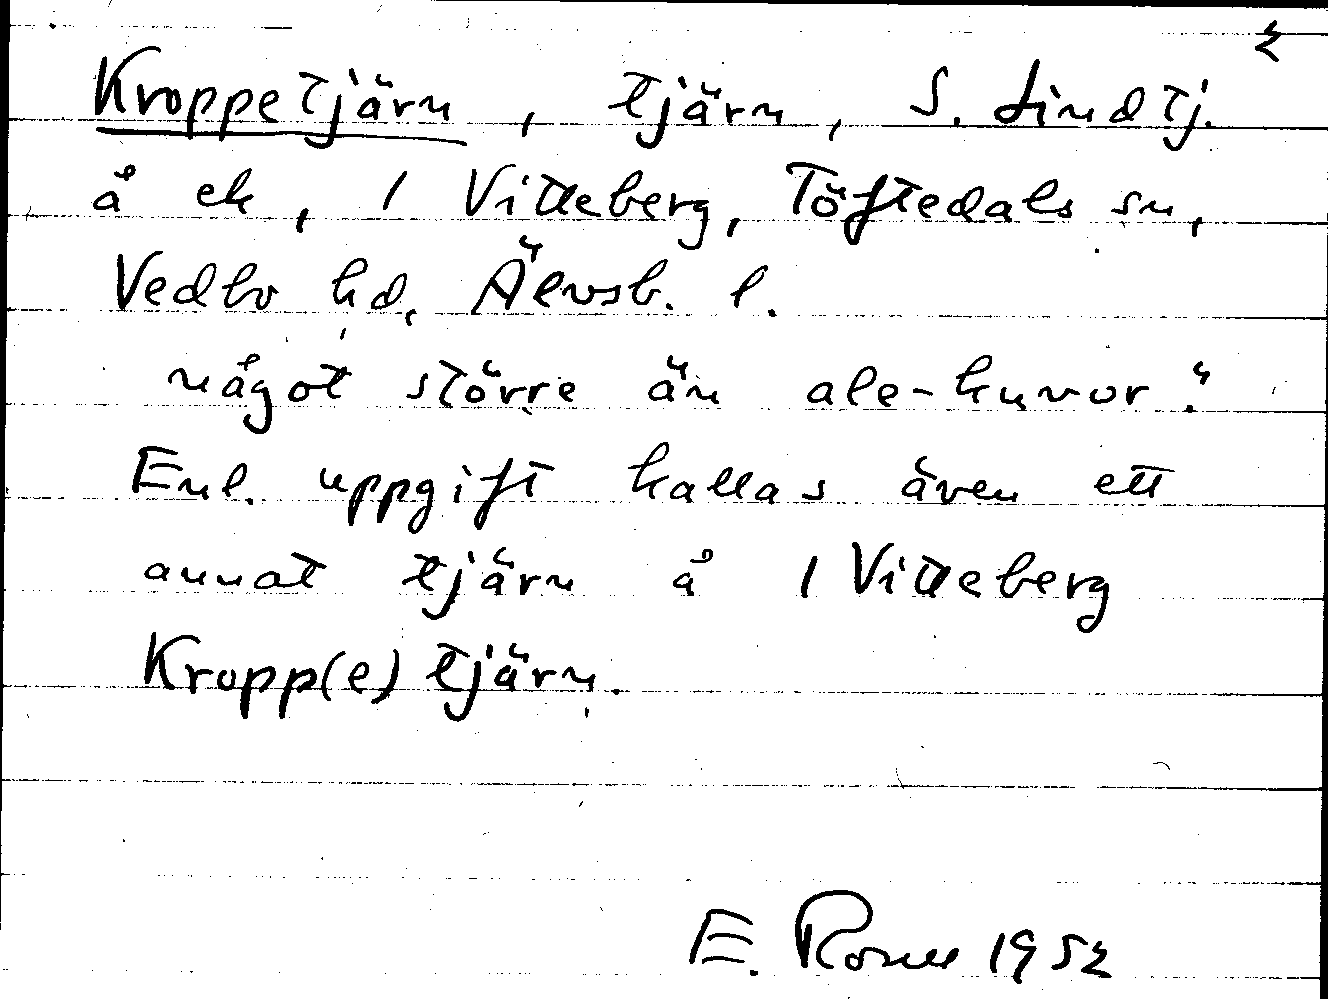 2
Kroppetjärn, tjärn, S. Lindtj.
å ek, 1 Vitteberg, Töftedals sn,
Vedbo hd, Älvsb. l.
något större än ale-kuvor."
Enl. uppgift kallas även ett
annat tjärn å 1 Vitteberg
Kropp(e)tjärn.
E. Rosell 1952